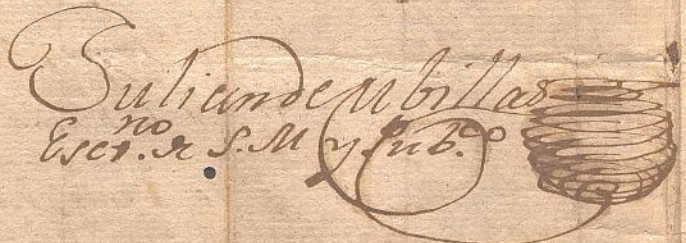 Julian de Ubillas
Escr.no R S. M y Pub.co